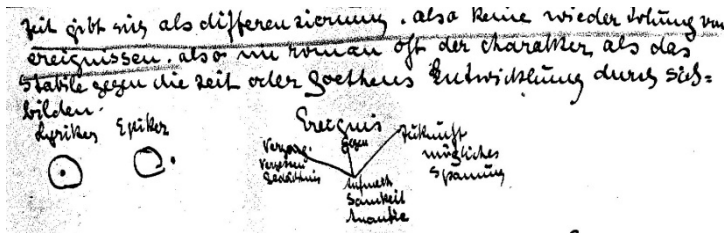 zeit gibt sichs als differenzierung. also keine wiederholung von
ereignissen. also im roman oft der charakter als das
stabile gegen die zeit oder goethens Entwicklung durch sich=
bilden.
Lyriker Epiker
Ereignis
Vergang. gegen Zukunft
Vergessen mögliches
Gedächtnis Spannung
Aufmerk
samkeit
Ananke